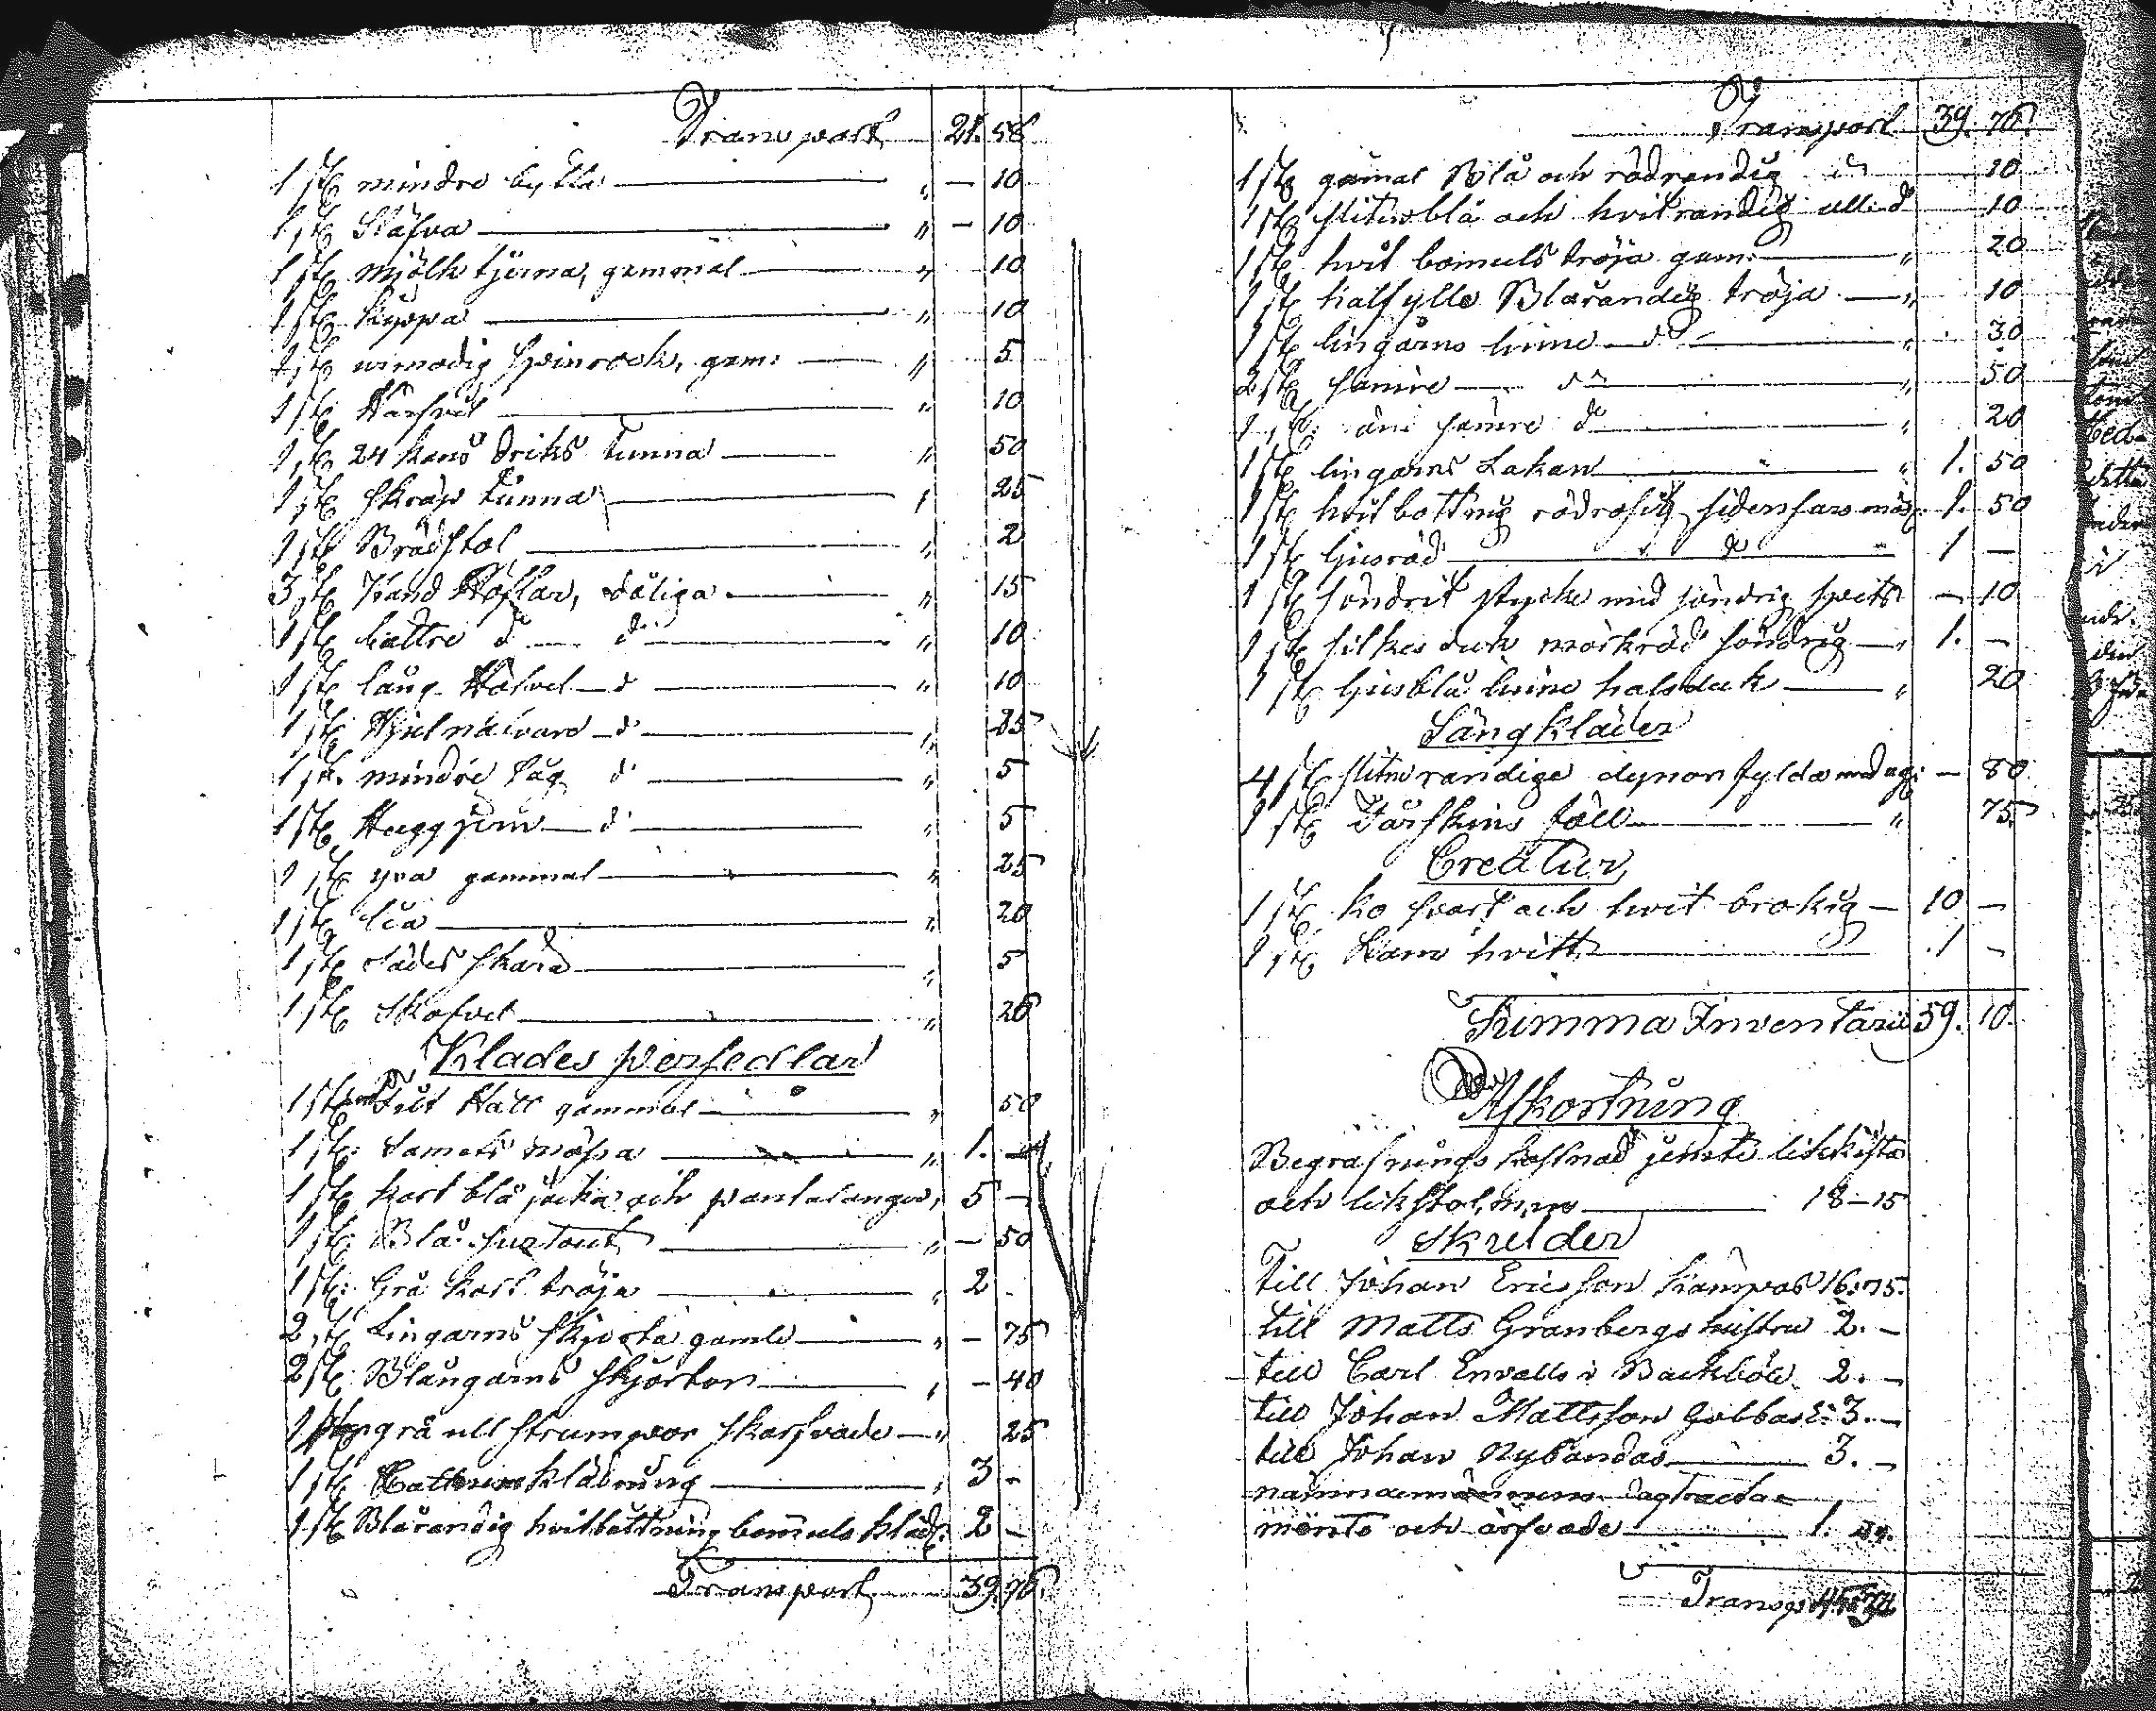 Transport 21. 58
1 st: mindre bytta " — 10
1 st: Stäfva " — 10
1 st: mjölk tjerna, gammal " 10
1 st: Kyppa " 10
1 st: urmodig spinrock, gam: " 5
1 st: Härfvel " 10
1 st: 24 kans driks Tunna " 50
1 st: skräp tunna " 25
1 st: Brädstol " 2
3 st: Hand Höflar, dåliga " 15
1 st: battre do do " 10
1 st: lång Höfvel do " 10
1 st: Hjulnafvare do " 25
1 st: mindre såg do " 5
1 st: Huggjern do " 5
1 st: yxa gammal " 25
1 st: lia " 20
1 st: Sädes skära " 5
1 st: Skofvel " 26
Klades persedlar
1 st: Filt Hatt gammal " 50
1 st: Samets mössa " 1. —
1 st: kort blå jacka och pantalanger, 5 —
1 st: Blå surtout " — 50
1 st: Grå kort tröja " 2 -
2 st: Lingarns skjorta gamle " — 75
2 st: Blångarns skjortor " — 40
1 par grå ull strumpor skarfvade " 25
1 st: Cattuns klädning " 3 -
1 st: Blårandig hvitbottning bomuls kläd: 2 -
Transport 39. 76.
Transport 39. 76.
1 st: gamal Blå och rödrandig do 10
1 st: sliten blå och hvitrandig ull do 10
1 st: hvit bomuls tröja gam: " 20
1 st: halfylle Blårandig tröja " 10
1 st: lingarns linne do " 30
2 st: samre do " 50
1 st: än samre do " 20
1 st: lingarns Lakan " 1. 50
1 st: hvit bottnig rödrosig sidensars möss: 1. 50
1 st: ljusröd do 1 —
1 st: söndrit stycke med söndrig spets — 10
1 st: silkes duk mörkröd söndrig " 1. —
1 st: ljusblå linne halsduk " 20
Sängkläder
4 st: slitne randige dynor fylda med ag: — 80
1 st: Fårskins fäll " 75
Creatur
1 st: ko svart och hvit brokig 10 —
1 st: Lam hvitt 1 —
Summa Inventarii 59. 10.
Afkortning
Begrafnings kostnad jemte likkista
och likstol, m, m 18–15
Skulder
Till Johan Ericsson Kampas 16:75.
till Matts Granbergs hustru 2. —
till Carl Envalls i Backböle 2. —
till Johan Mattsson Gubbas E: 3. —
till Johan Nybondas 3. —
nämndemännens dagtracta-
mente och arfvode 1. 84.
Transp: